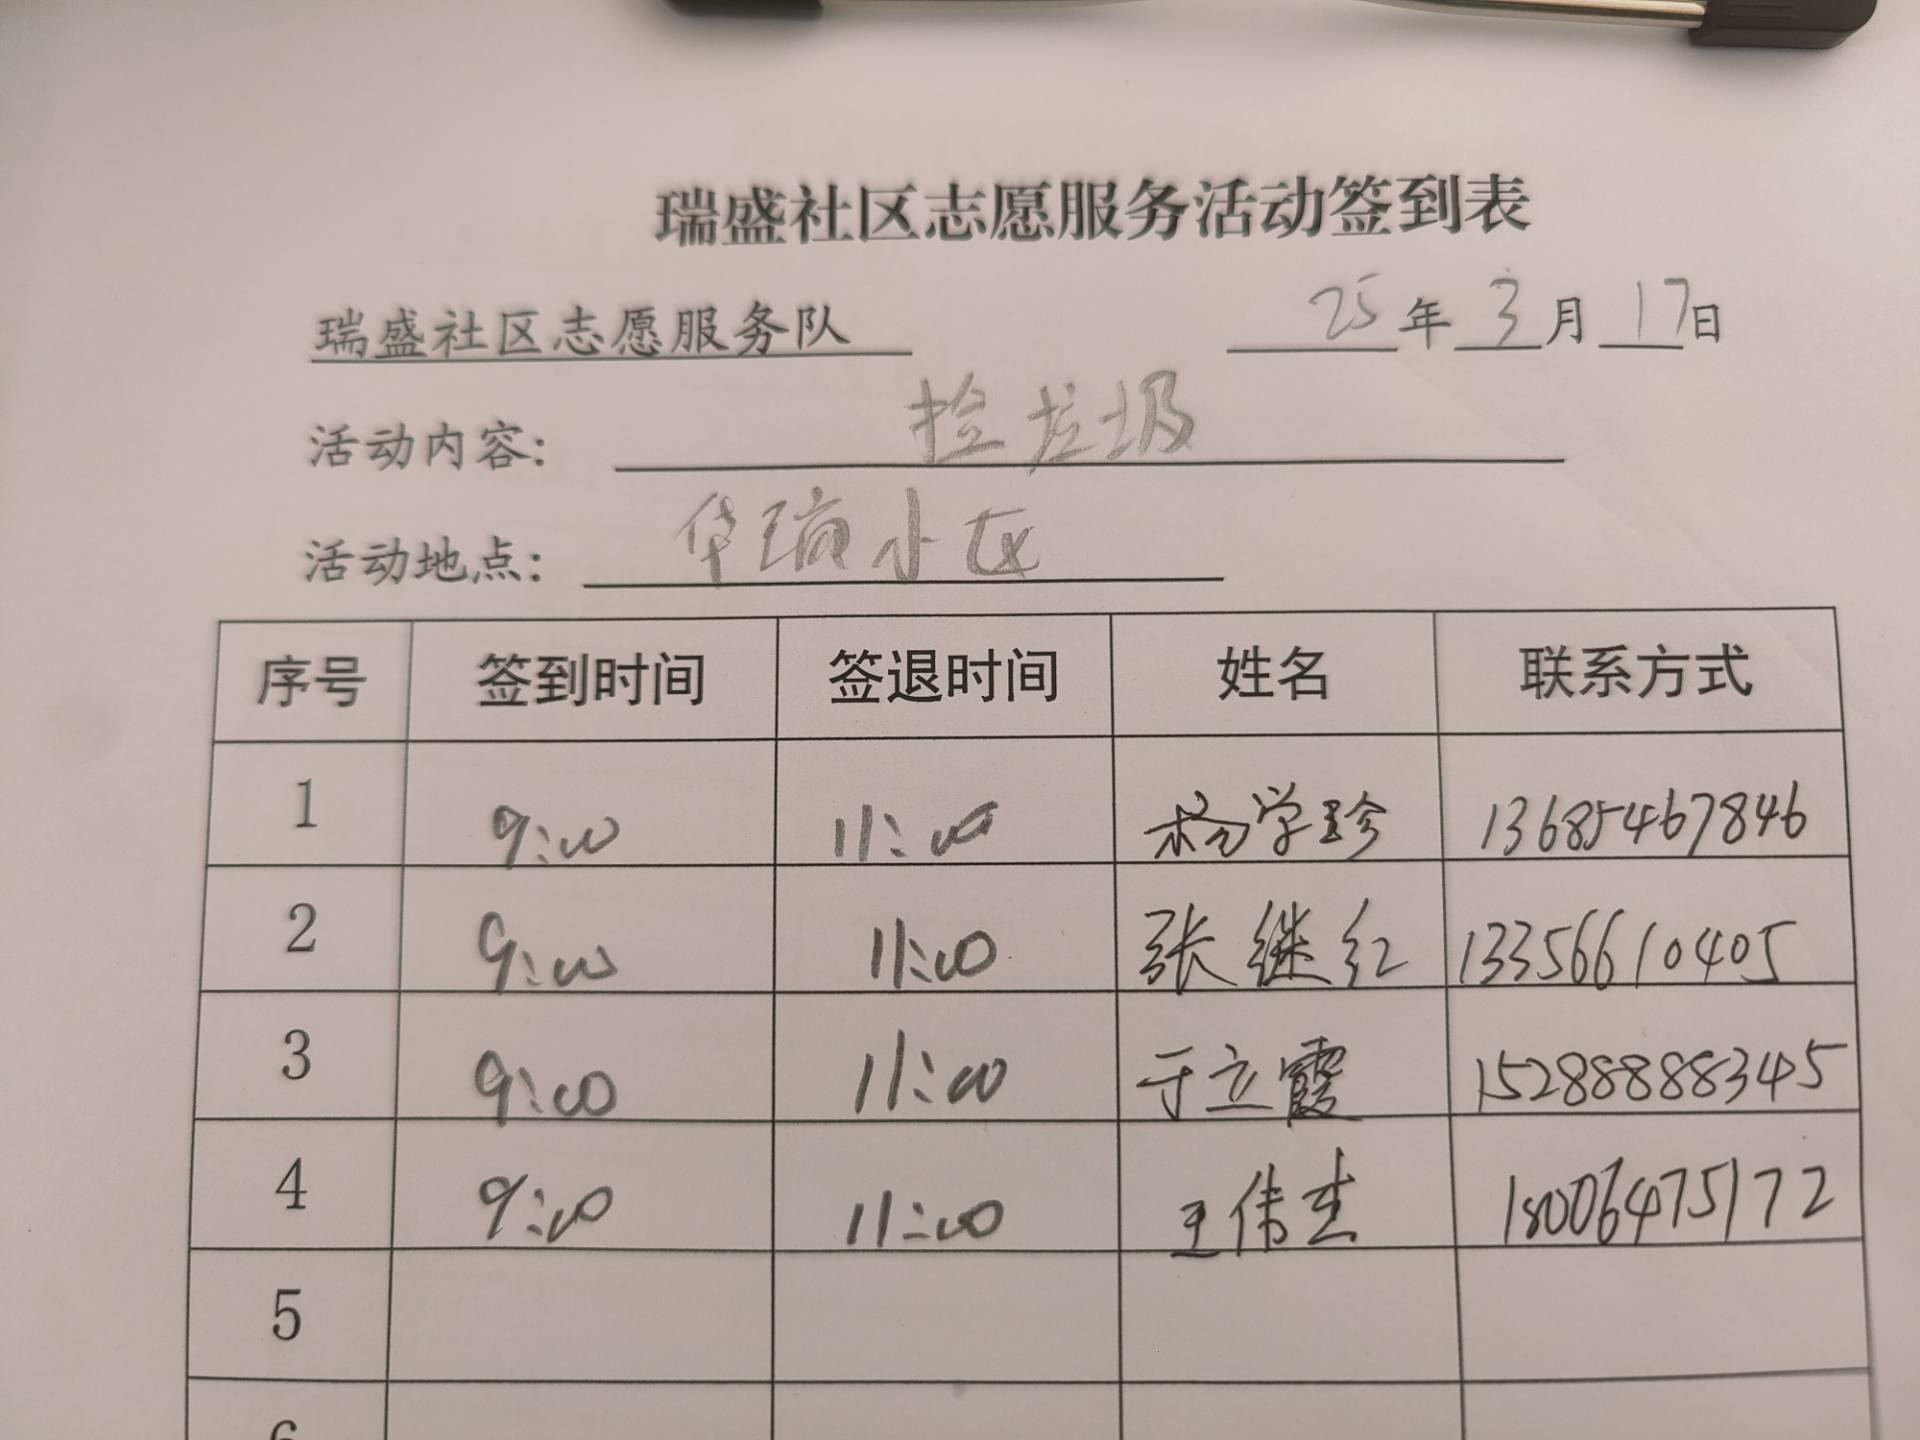 瑞盛社区志愿服务活动签到表
瑞盛社区志愿服务队 25年3月17日
活动内容: 捡垃圾
活动地点: 华瑞小区
序号 签到时间 签退时间 姓名 联系方式
1 9:00 11:00 杨学珍 13685467846
2 9:00 11:00 张继红 13356610405
3 9:00 11:00 于立霞 15288888345
4 9:00 11:00 王伟杰 18006475172
5
6